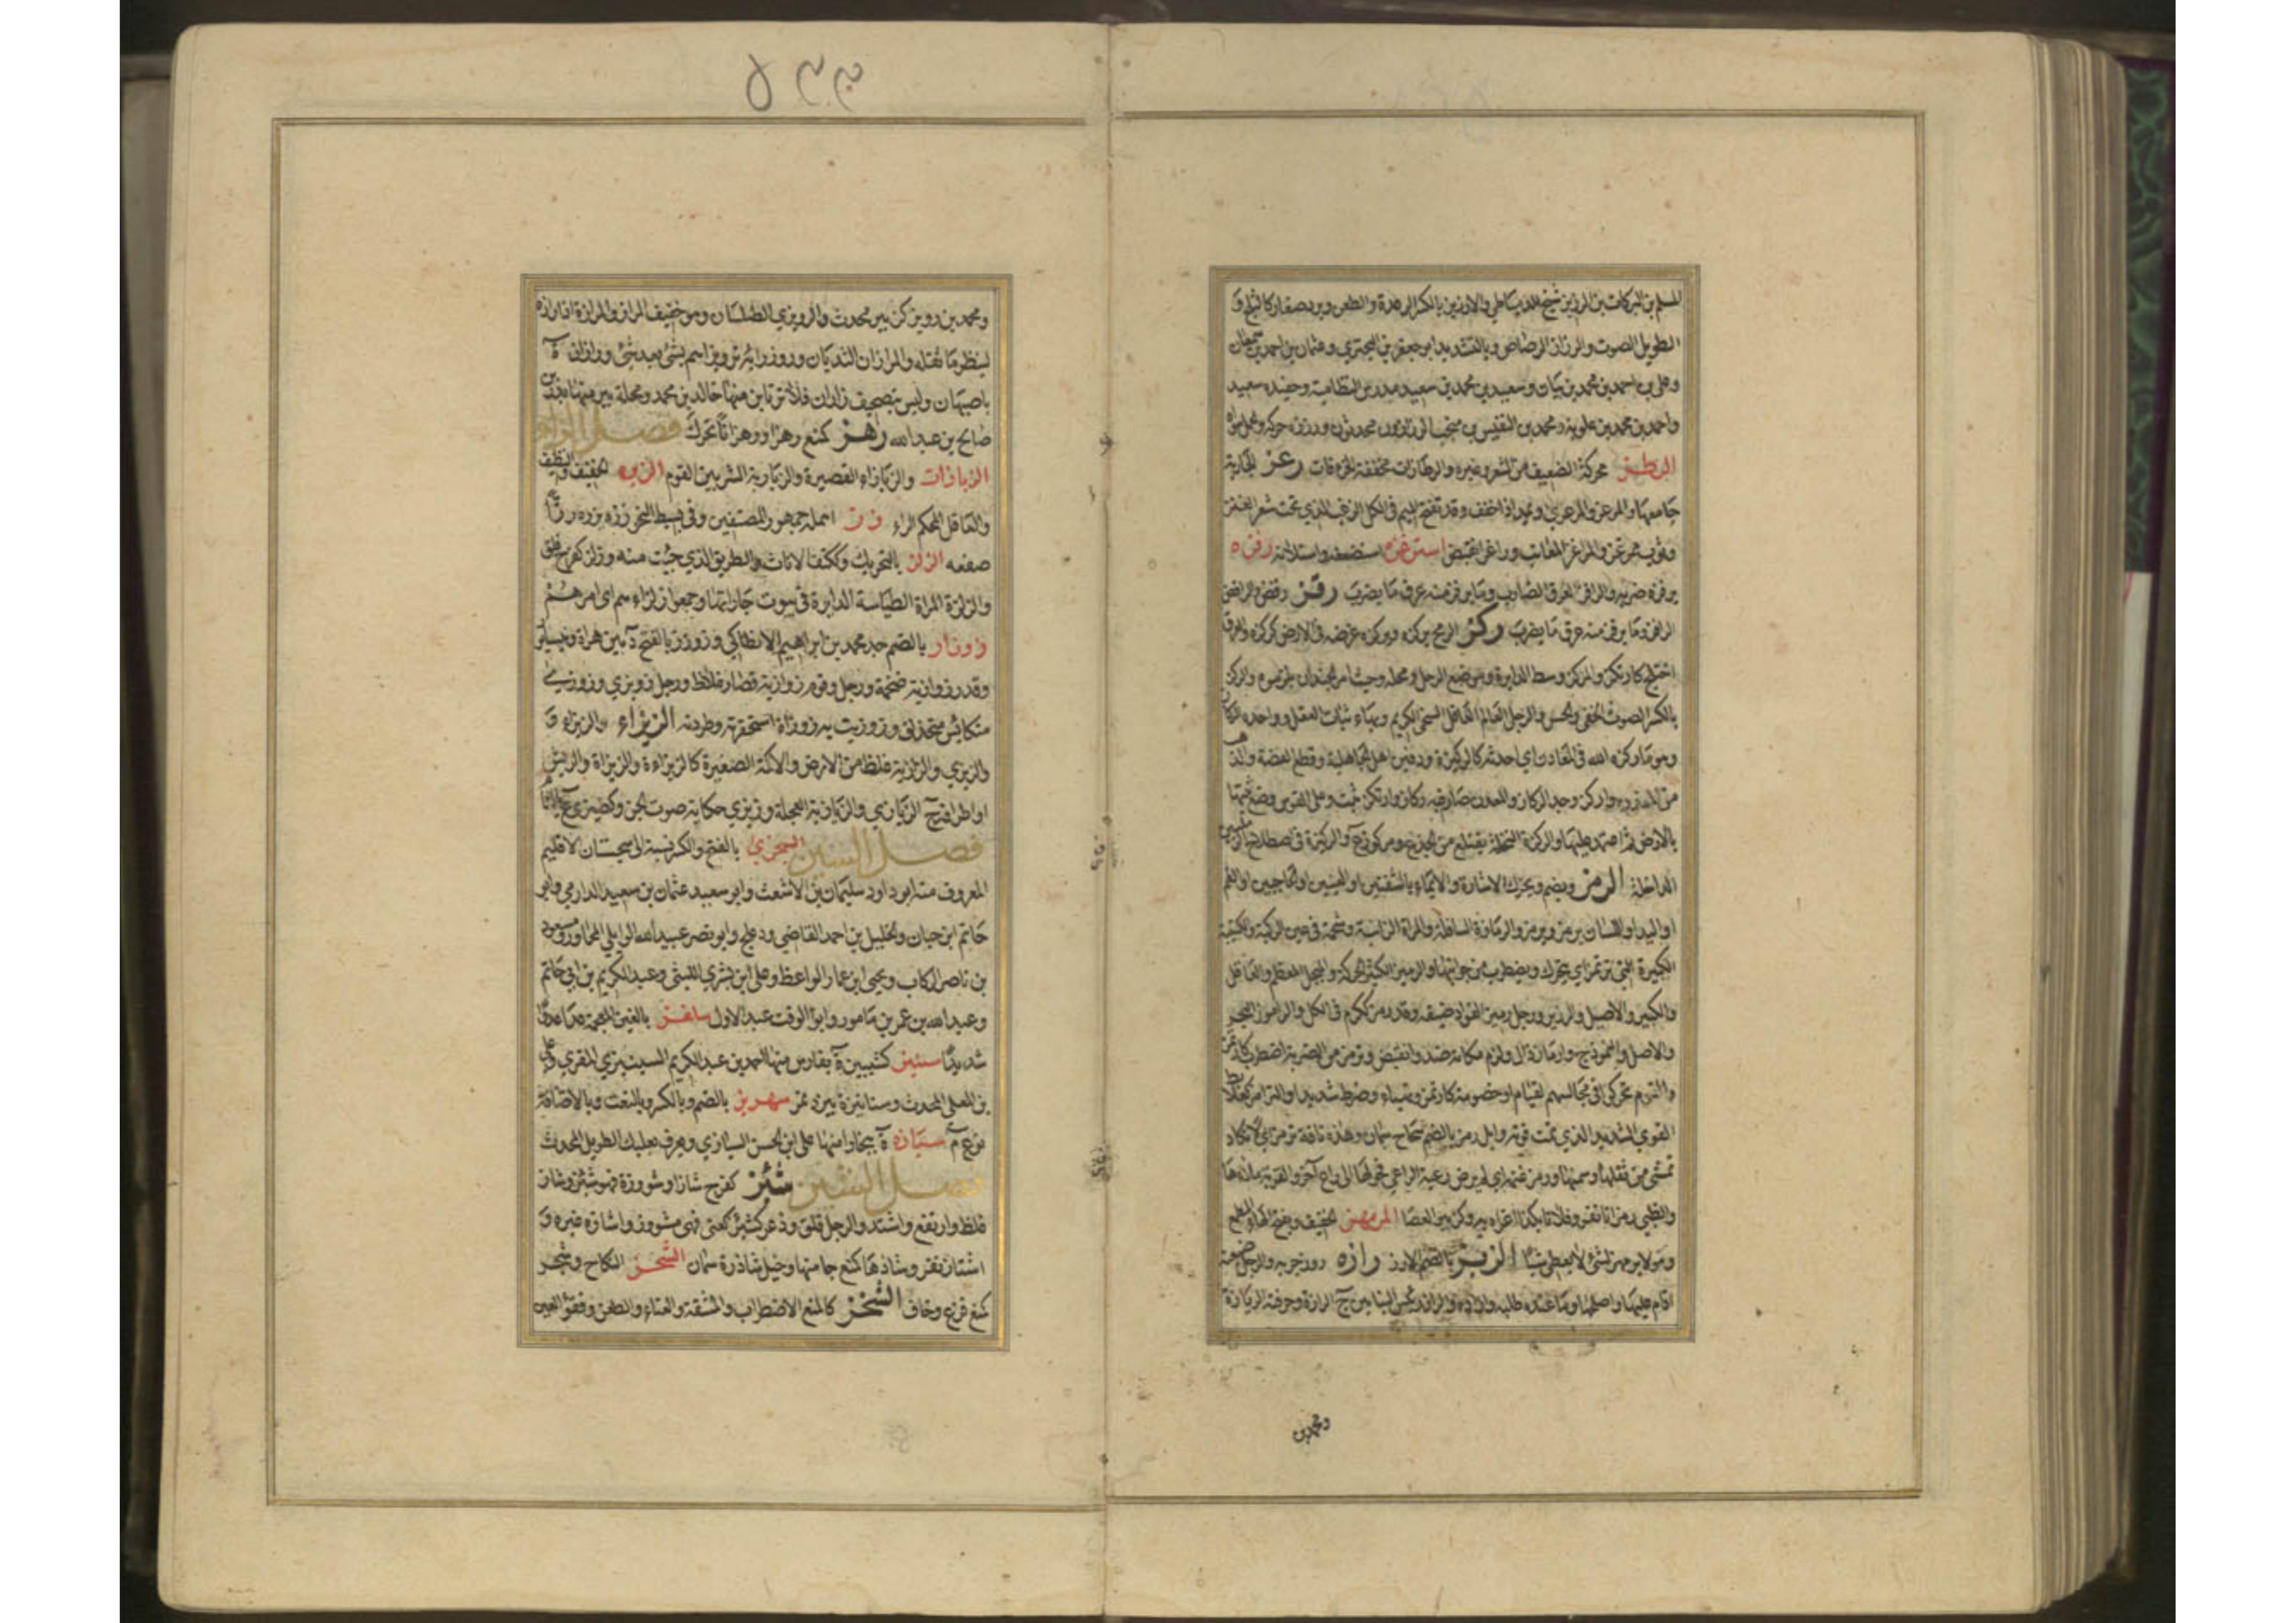 المسلم بن البركات بن المرزبن شيخ الدمياطي والارزيز بالكسر الرعدة والطعن وبرد صغار كالثلج و
الطويل الصوت والرزاز الرصاص وبالتشديد ابو جعفر بن البختري وعثمان بن احمد بن سمعان
وعلى بن احمد بن محمد بن بيان وسعيد بن محمد بن سعيد مدرس النظامية وحفيده سعيد
واحمد بن محمد بن علوية ومحمد بن النفيس بن منجب الرزازون محدثون ورزرزه حركه والحمل سواه
الرطز محركة الضعيف من الشعر وغيره والرطازات مخففة الخرافات رعز الجارية
جامعها والمرعز والمرعزى ويمد اذا خفف وقد تفتح الميم في الكل الزغب الذي تحت شعر العنز
وثوب ممرعز والمراغز المعاتب وراغز انقبض استرغزه استضعفه واستلانه رفزه
يرفزه ضربه والرافز العرق الضارب وما يرفز منه عرق ما يضرب رقز رقص والراقز
الرافز وما يرقز منه عرق ما يضرب ركز الرمح يركزه ويركزه غرزه في الارض كركزه والعرق
اختلج كارتكز والمركز وسط الدايرة وموضع الرجل ومحله وحيث امر الجند ان يلزموه والركز
بالكسر الصوت الخفي والحس والرجل العالم العاقل السخي الكريم وبهاء ثبات العقل وواحدة الركاز
وهو ما ركزه الله في المعادن اي احدثه كالركيزة ودفين اهل الجاهلية وقطع الفضة والذهب
من المعدن واركز وجد الركاز والمعدن صار فيه ركاز وارتكز ثبت وعلى القوس وضع سيتها
بالارض ثم اعتمد عليها والركزة النخلة يقتلع من الجذع ومركوز ع والركيزة في اصطلاح الرمليين
الداخلة الرمز ويضم ويحرك الاشارة والايماء بالشفتين او العينين او الحاجبين او الفم
او اليد او اللسان يرمز ويرمز والرمازة السافلة والمراة الزانية وشحمة في عين الركبة والكتيبة
الكبيرة التي ترتمز اي تتحرك ويضطرب من جوانبها والرميز الكثير الحركة والمبجل المعظم والعاقل
والكبير والاصيل والرزين ورجل رميز الفواد ضيقه وقد رمز ككرم في الكل والراموز البحر
والاصل والنموذج وارماز زال ولزم مكانه ضد وانقبض وترمز من الضربة اضطرب كارتمز
والقوم تحركوا في مجالسهم لقيام او خصومة كارتمز وتهياء وضرط شديدا والترامز كعلابط
القوي الشديد الذي تمت قوته وابل رمز بالضم سحاح سمان وهذه ناقة ترمز اي لا تكاد
تمشي من ثقلها وسمنها ورمز غنمه اي لم يرض رعية الراعي فحولها الى راع آخر والقربة ملاها
والظبي رمزانا نقز وفلانا بكذا اغراه به وكزبير العصا المرمهز الخفيف وبفتح الهاء المطمع
وهو لا يرمهز لشئ لا يعطي شيا الرنز بالضم الارز رازه روزا جربه والرجل ضيعته
اقام عليها واصلحها وما عنده طلبه واراده والراز رئيس البنايين ج الرازة وحرفته الريازة
ومحمد بن
ومحمد بن رويز كزبير محدث والرويزي الطيلسان ومن خفيف المراز والمرازة اذا رازه
لينظر ما ثقله والمرازان الثديان وروز رايه ترويزا هم بشئ بعد شئ وراران ة
باصبهان وليس بتصحيف زاران فلا تزناين منها خالد بن محمد ومحلة ببروجرد منها بدر بن
صالح بن عبد الله رهز كمنع رهزا ورهزانا تحرك فصل الزاء
الزبازات والزبازاء القصيرة والزبازية الشر بين القوم الزبن الخفيف والنظيف
والعاقل المحكم الراء زز اهمله جمهور المصنفين وفي بسيط النحو ززه يززه ززا
صفعه الزلز بالتحريك وككتف الاثاث والطريق الذي جئت منه وزلز كفرح قلق
والزلزة المراة الطياشة الدايرة في بيوت جاراتها وجمعوا زلزاءهم اي امرهم
زوزان بالضم جد محمد بن ابراهيم الانطاكي وزوزن بالفتح د بين هراة ونيسابور
وقدر زوازية ضخمة ورجل وقوم زوازية قصار غلاظ ورجل زويزي وزوزي
متكايس متحذلق وزوزيت به زوزاة استحقرته وطردته الزيزاء والزيزاء و
والزيزي والزازية غلظ من الارض والاكمة الصغيرة كالزيزاءة والزيزاة والريش
او اطرافه ج الزيازي والزيازية العجلة وزيزي حكاية صوت الجن وكضيزى ع بالشام
فصل السين السجزي بالفتح والكسر نسبة الى سجستان لاقليم
المعروف منه ابو داود سليمان بن الاشعث وابو سعيد عثمان بن سعيد الدارمي وابو
حاتم ابن حبان والخليل بن احمد القاضي ودعلج وابو نصر عبيد الله الوايلي المجاور ومسعود
بن ناصر الركاب ويحيى ابن عمار الواعظ وعلى ابن بشرى الليثي وعبد الكريم بن ابي حاتم
وعبد الله بن عمر بن مامور وابو الوقت عبد الاول سلغز بالغين المعجمة عدا عدوا
شديدا سينيز كشينيز ة بفارس منها احمد بن عبد الكريم السينيزي المقري وعلى
بن المعلى المحدث وسنانيزة بيزد تمر سهريز بالضم وبالكسر وبالنعت وبالاضافة
نوع م سيازه ة ببخارا منها على ابن الحسن السيازي ويعرف بعليك الطويل المحدث
فصل الشين شئز كفرح شازا وشووزة فهو شئز وشاز
غلظ وارتفع واشتد والرجل قلق وذعر كشئز كعني فهو مشووز واشازه غيره و
اشتاز نفز وشازها كمنع جامعها وخيل شازة سمان الشحز النكاح وشحز
كمنع فزع وخاف الشخز كالمنع الاضطراب والمشقة والعناء والطعن وفقؤ العين